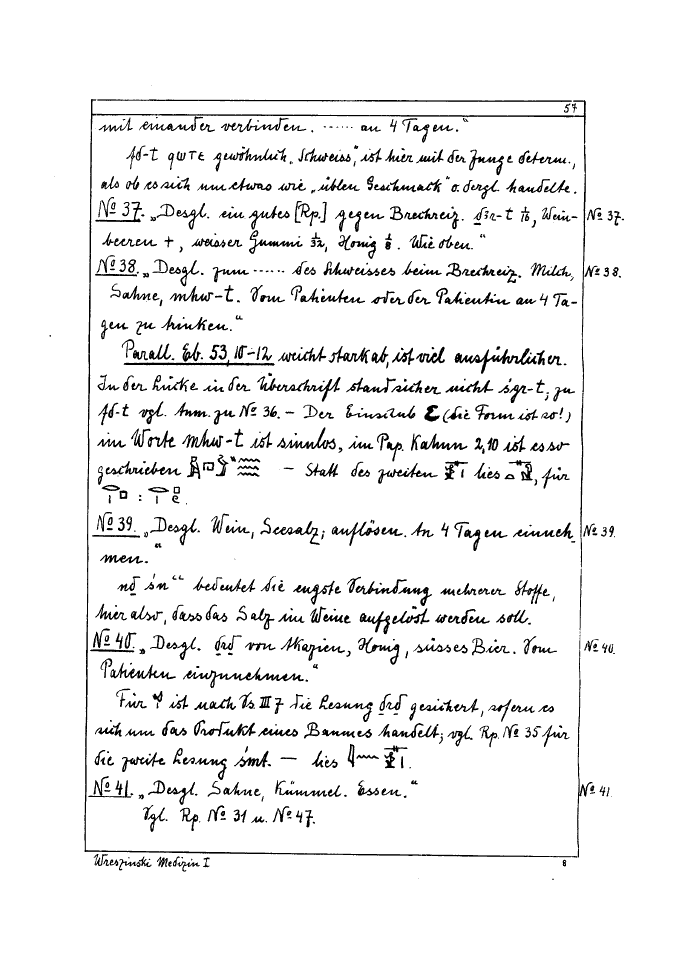 57
mit einander verbinden. ...... an 4 Tagen."
fd-t ϥωτε gewöhnlich „Schweiss", ist hier mit der Zunge determ.,
als ob es sich um etwas wie „üblen Geschmack" o. dergl. handelte.
No 37. „Desgl. ein gutes [Rp.] gegen Brechreiz. 1/16, Wein- No 37.
beeren +, weisser Gummi 1/32, Honig 1/8. Wie oben."
No 38. „Desgl. zum ...... des Schweisses beim Brechreiz. Milch, No 38.
Sahne, mhw-t. Vom Patienten oder der Patientin an 4 Ta-
gen zu trinken."
Parall. Eb. 53, 10-12 weicht stark ab, ist viel ausführlicher.
In der Lücke in der Überschrift stand sicher nicht sgr-t; zu
fd-t vgl. Anm. zu No 36. – Der Einschub (die Form ist so!)
im Worte mhw-t ist sinnlos, im Pap. Kahun 2,10 ist es so
geschrieben – Statt des zweiten lies , für
:
No 39. „Desgl. Wein, Seesalz; auflösen. An 4 Tagen einneh- No 39.
men."
nḏ śn" bedeutet die engste Verbindung mehrerer Stoffe,
hier also, dass das Salz im Weine aufgelöst werden soll.
No 40. „Desgl. ḏrḏ von Akazien, Honig, süsses Bier. Vom No 40.
Patienten einzunehmen."
Für ist nach Vs III 7 die Lesung ḏrḏ gesichert, sofern es
sich um das Produkt eines Baumes handelt; vgl. Rp. No 35 für
die zweite Lesung śmt. — lies
No 41. „Desgl. Sahne, Kümmel. Essen." No 41
Vgl. Rp. No 31 u. No 47.
Wreszinski Medizin I 8